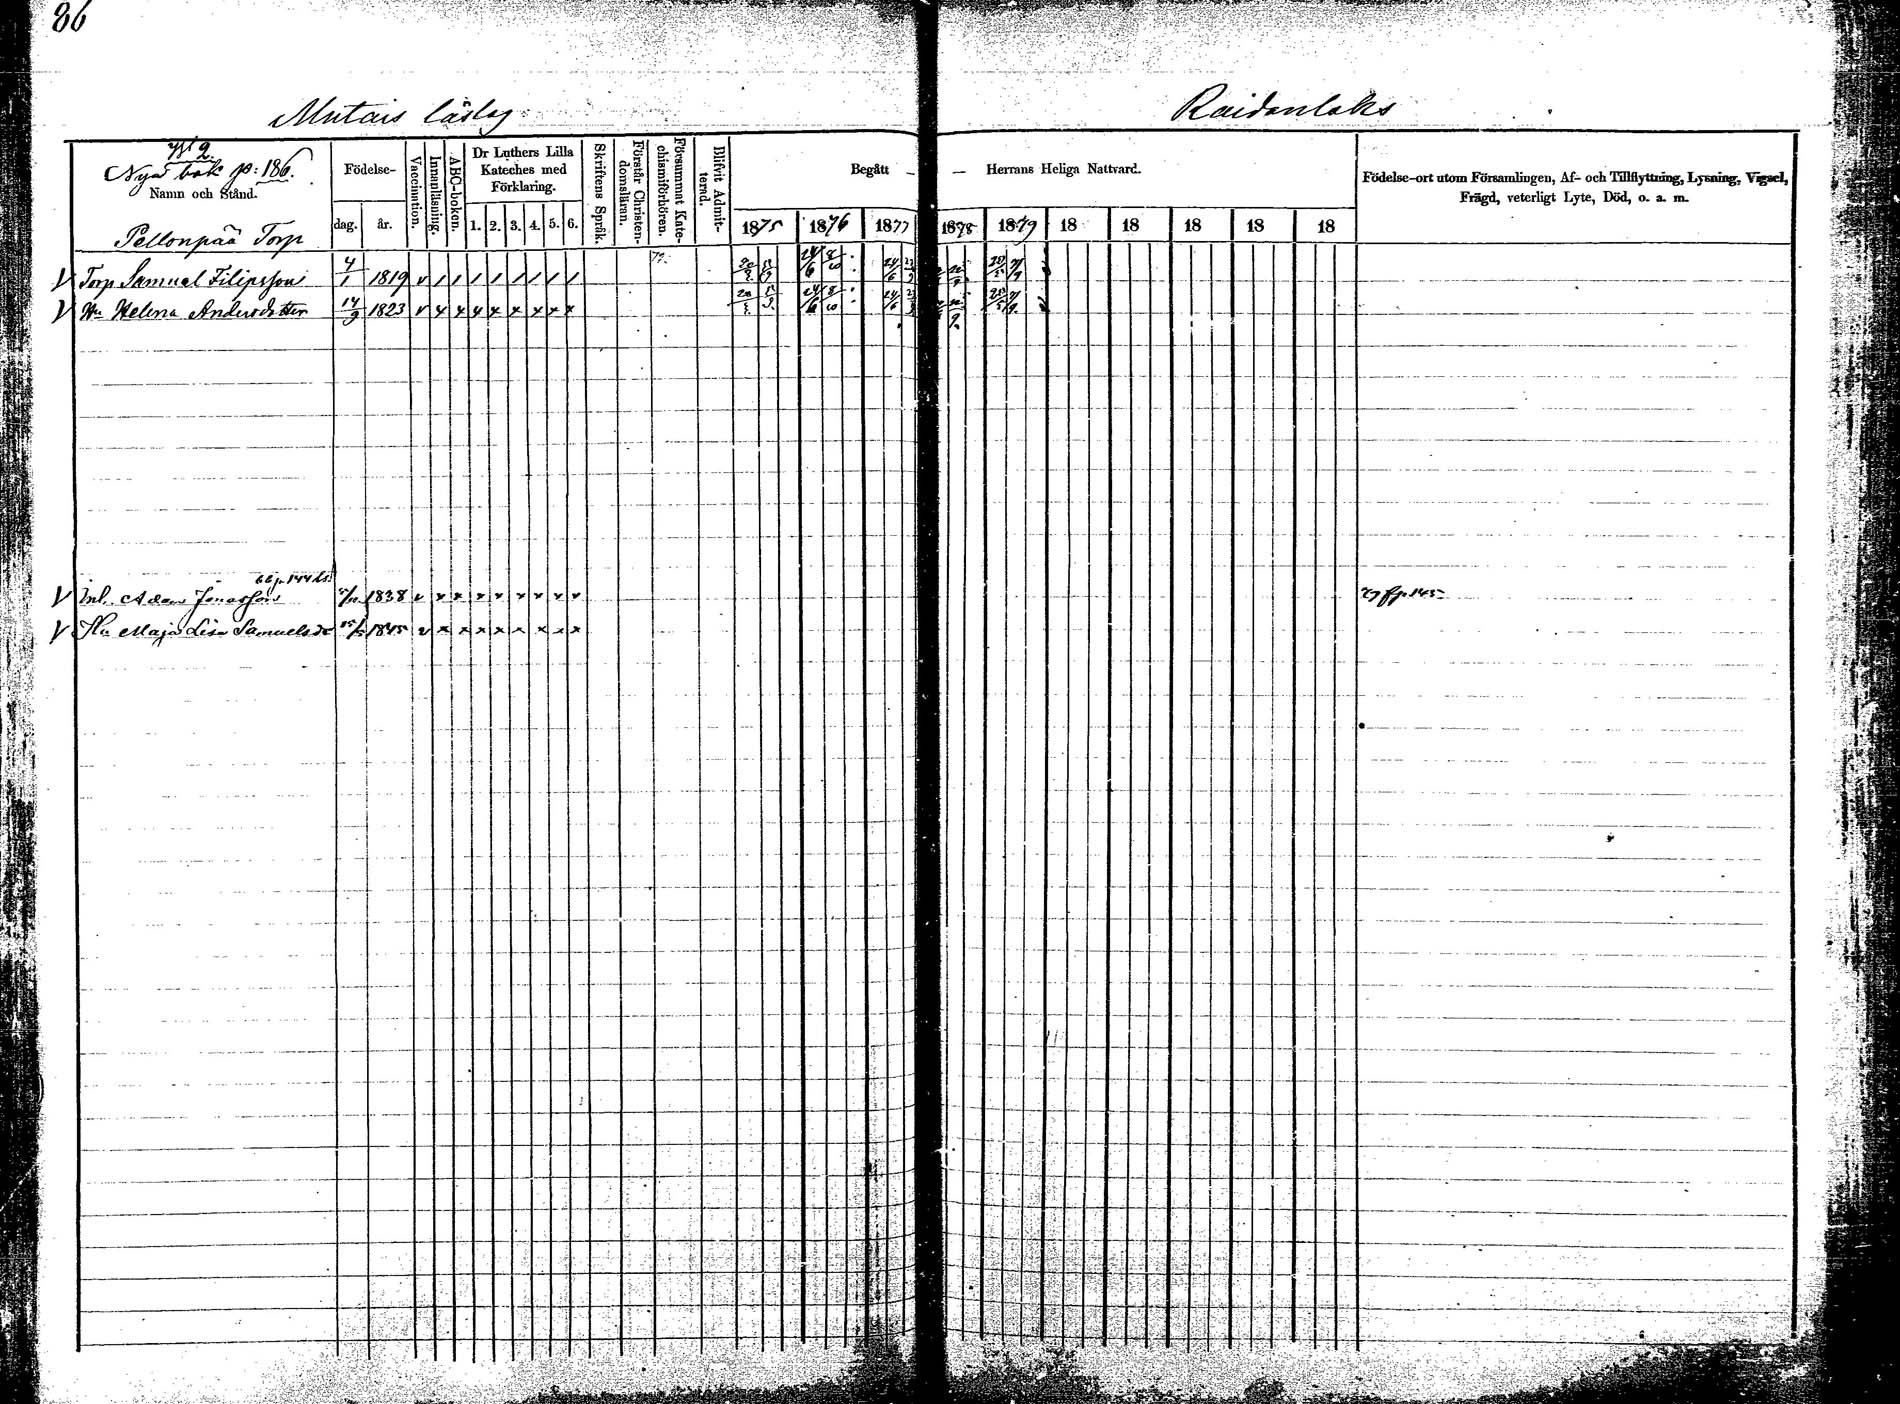 86
Mutais läslag
Raidanlaks
Nya bok p: 186.
Namn och Stånd.
Födelse-
dag. år.
Vaccination.
Innanläsning.
ABC-boken.
Dr Luthers Lilla Kateches med Förklaring.
1. 2. 3. 4. 5. 6.
Skriftens Språk.
Förstår Christendomsläran.
Försummat Katechismiförhören.
Blifvit Admitterad.
Begått — — Herrans Heliga Nattvard.
1875 1876 1877 1878 1879 18 18 18 18 18
Födelse-ort utom Församlingen, Af- och Tillflyttning, Lysning, Vigsel,
Frägd, veterligt Lyte, Död, o. a. m.
Pellonpää Torp
V Torp Samuel Filipsson 1819 v / / / / / / / /
V Hu Helena Andersdotter 14/9 1823 v x x x x x x x x
V Inh. Adam Jonasson 1838 v x x x x x x x x
V Hu Maja Lisa Samuelsdr 1845 v x x x x x x x x